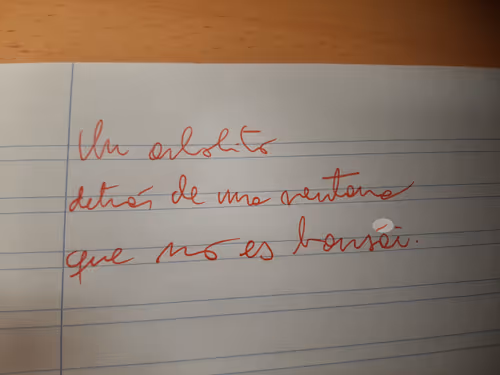 Un arbolito
detrás de una ventana
que no es bonsái.